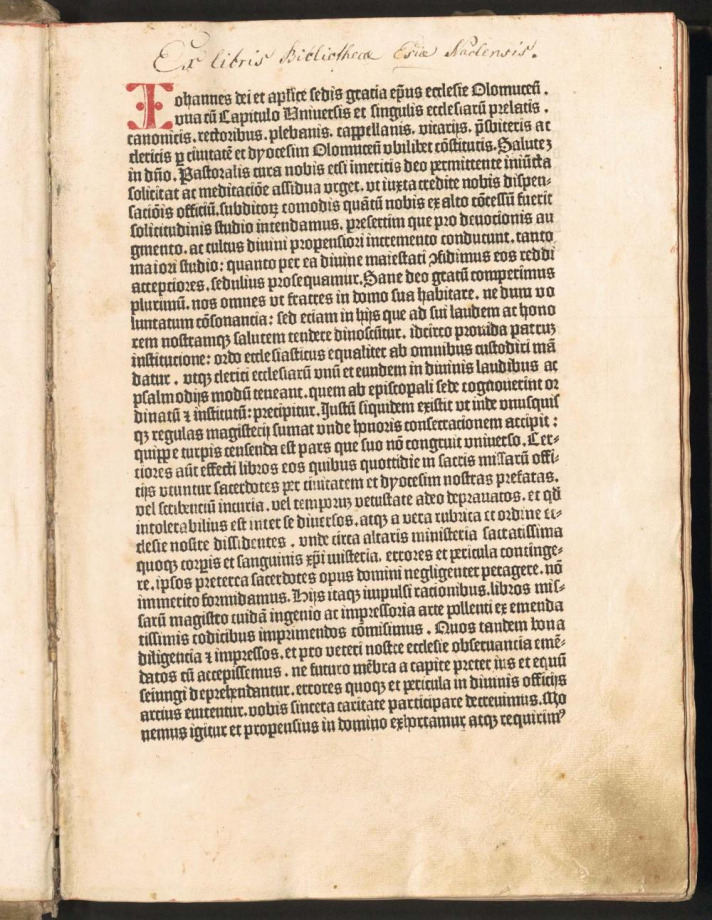 Ex libris Bibliothecæ Eriæ Naclensis.
Johannes dei et apl̄ice sedis gratia ep̄us ecclesie Olomuceñ .
vna cū Capitulo Vniuersis et singulis ecclesiarū prelatis .
canonicis. rectoribus. plebanis. cappellanis. vicarijs. p̄sbiteris ac
clericis ꝑ ciuitatē et dyocesim Olomuceñ vbilibet cōstitutis. Salutez
in dn̄o. Pastoralis cura nobis etsi īmeritis deo permittente iniūcta
solicitat ac meditaciōe assidua vrget. vt iuxta credite nobis dispen-
saciōis officiū. subditoꝝ comodis quātū nobis ex alto cōcessū fuerit
solicitudinis studio intendamus. presertim que pro deuocionis au
gmento. ac cultus diuini propensiori incremento conducunt. tanto
maiori studio: quanto per ea diuine maiestati ꝯfidimus eos reddi
acceptiores. sedulius prosequamur. Sane deo gratū comperimus
plurimū. nos omnes vt fratres in domo sua habitare. ne dum vo
luntatum cōsonancia: sed eciam in hijs que ad sui laudem ac hono
rem nostramqꝫ salutem tendere dinoscūtur. idcirco prouida patruꝫ
institucione: ordo ecclesiasticus equaliter ab omnibus custodiri mā
datur . vtqꝫ clerici ecclesiarū vnū et eundem in diuinis laudibus ac
psalmodijs modū teneant. quem ab episcopali sede cognouerint or
dinatū ⁊ institutū: precipitur. Justū siquidem existit vt inde vnusquis
qꝫ regulas magisterij sumat vnde honoris consecracionem accipit :
quippe turpis censenda est pars que suo nō congruit vniuerso. Cer-
ciores aūt effecti libros eos quibus quottidie in sacris missarū offi-
cijs vtuntur sacerdotes per ciuitatem et dyocesim nostras prefatas.
vel scribenciū incuria. vel temporuꝫ vetustate adeo deprauatos. et qd̄
intolerabilius est inter se diuersos. atqꝫ a vera rubrica et ordine ec-
clesie nostre dissidentes . vnde circa altaris ministeria sacratissima
quoqꝫ corꝑis et sanguinis xp̄i misteria. errores et pericula continge-
re. ipsos preterea sacerdotes opus domini negligenter peragere. nō
immerito formidamus. Hijs itaqꝫ impulsi racionibus. libros mis-
sarū magistro cuidā ingenio ac impressoria arte pollenti ex emenda
tissimis codicibus imprimendos cōmisimus . Quos tandem bona
diligencia ⁊ impressos. et pro veteri nostre ecclesie obseruancia emē-
datos cū accepissemus . ne futuro mēbra a capite preter ius et equū
seiungi deprehendantur. errores quoqꝫ et pericula in diuinis officijs
arcius euitentur. vobis sincera caritate participare decreuimus. Mo
nemus igitur et propensius in domino exhortamur atqꝫ requirimꝰ